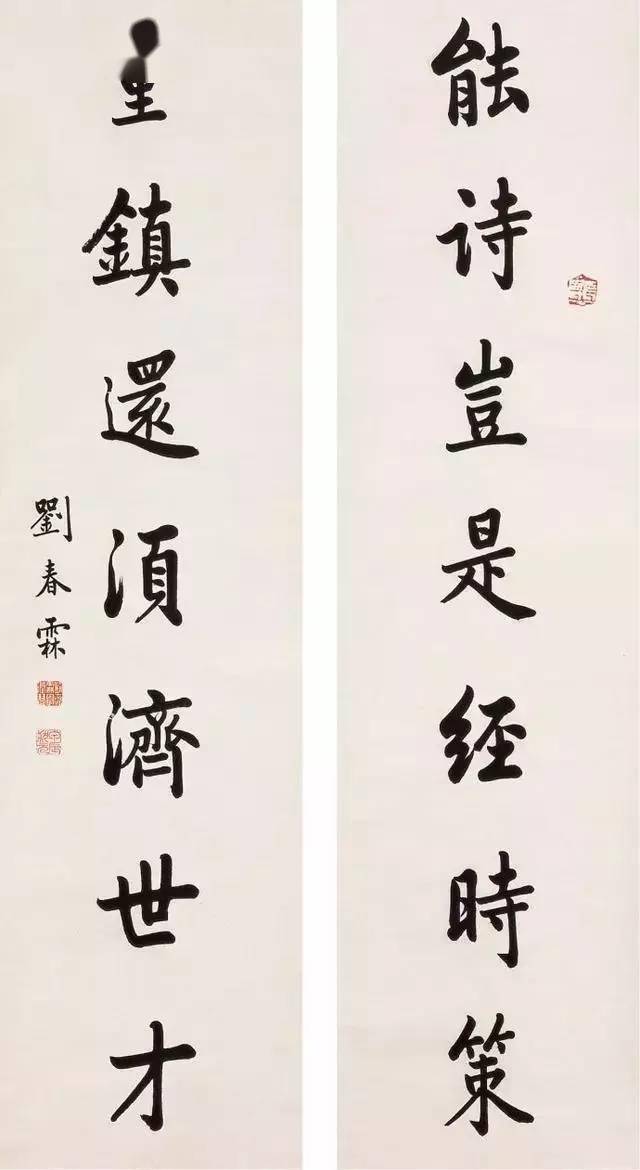 能诗豈是经時策
鎮還湏濟世才
劉春霖